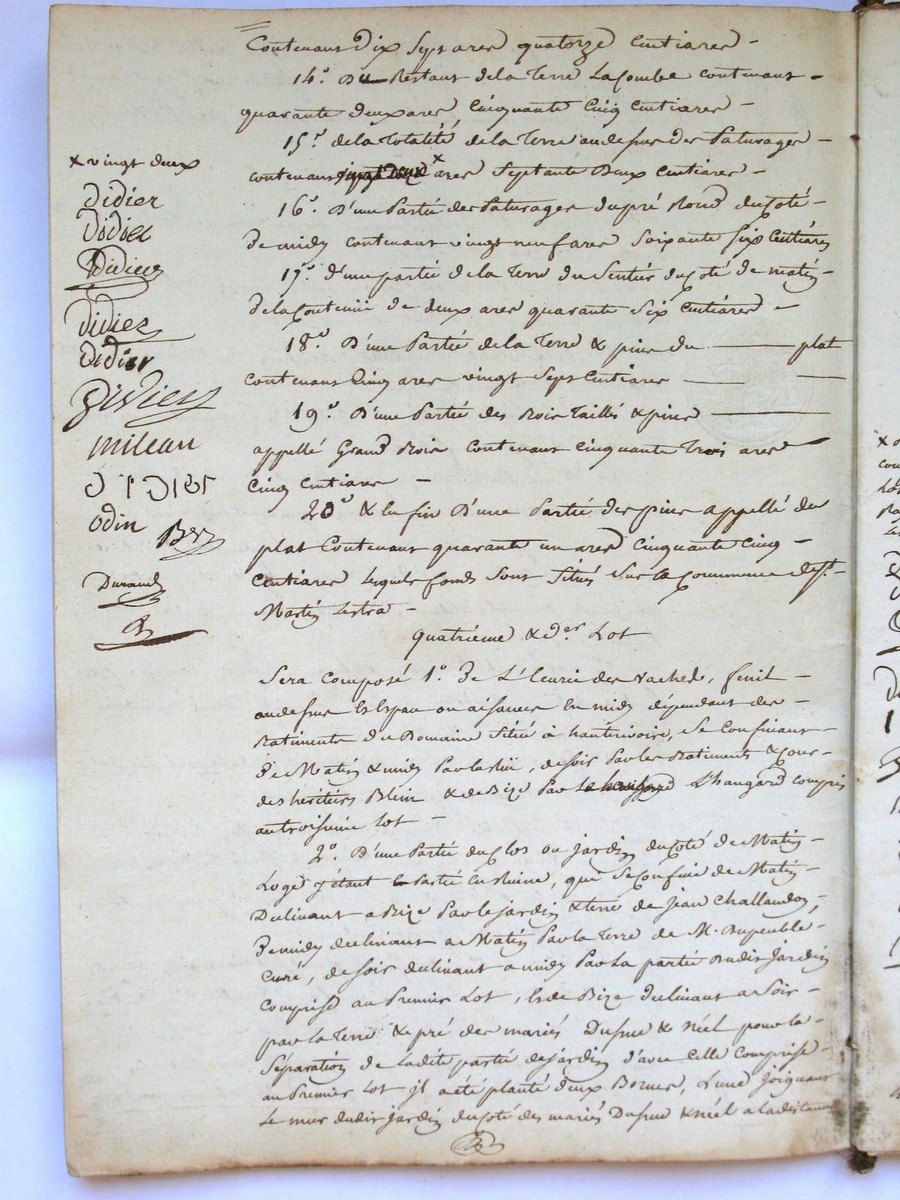 Contenant dix Sept ares quatorze Centiares -
14.° Du Restant dela Terre Lacombe contenant -
quarante deux ares Cinquante Cinq Centiares -
15.° dela totalité dela Terre audessus des Paturages -
contenant x ares Septante Deux Centiares -
16.° D'une Partie des Paturages du pré Rond du Coté -
De midy contenant vingt neuf ares Soixante Six Centiares
17.° d'une partie dela Terre du Sentier du Coté de matin -
dela Contenue de deux ares quarante Six Centiares -
18.° D'une Partie dela Terre & pins du ——— plat
contenant Cinq ares vingt Sept Centiares ——— —
19.° D'une Partie des Bois Taillis & pins ———
appellé Grand Bois contenant Cinquante Trois ares
Cinq Centiares -
20.° & la fin D'une Partie des pins appellé du
plat Contenant quarante un ares Cinquante Cinq -
Centiares lequels fonds Sont Situés Sur la Commune de St.
Martin Lestra -
quatrième & der Lot
Sera Composé 1.° De L'Ecurie des vaches, fenil -
audessus Et Espau ou aisances En midy dépendant des -
Batiments du Domaine Situé à hauterivoire, Se Confinant -
De Matin & midy Par la , de Soir Par les Batiments & Cour -
des héritiers Blein & de Bize Par L'hangard compris
autroisieme Lot -
2.° D'une Partie du Clos ou Jardin du Coté de Matin -
Loge y étant en Ruine, qui Se Confine de Matin -
Déclinant a Bize Par le jardin & terre de Jean Challandon,
De midy déclinant a Matin Par la Terre de M. Dupeuble -
Curé, de Soir déclinant a midy Par La partie dudit Jardin
Comprise au Premier Lot, Et de Bize déclinant a Soir -
par la Terre & pré des mariés Dusrue & néel pour la -
Séparation de Ladite partie de jardin d'avec Celle Comprise -
au Premier Lot jl a été planté deux Bornes, L'une Joignant
Le mur dudit Jardin du Coté des mariés Dusrue & néel a la distance
x vingt deux
didier
Didier
Didier
didier
didier
Didier
milean
DIDIER
odin
Ber
Durand